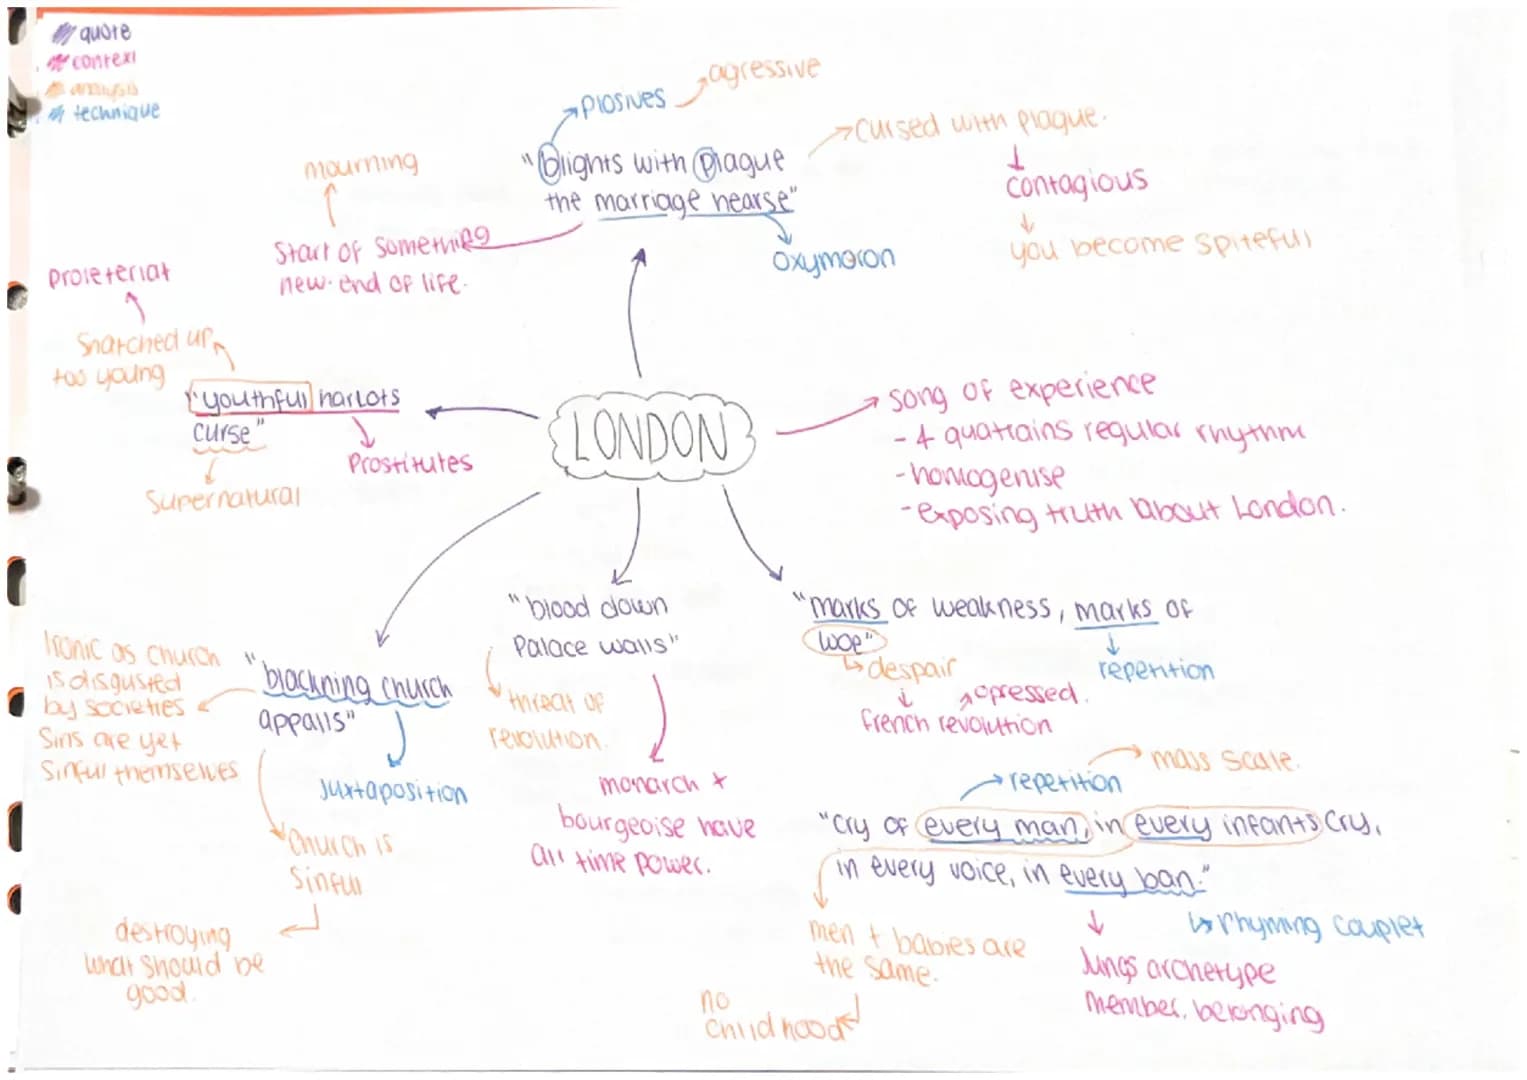 quote
context
analysis
technique
plosives
agressive
"blights with plague
the marriage hearse"
cursed with plague.
contagious
you become spiteful
oxymoron
mourning
Start of something
new. end of life.
Proleteriat
Snatched up
too young
"youthful harlots
curse"
Prostitutes
Supernatural
LONDON
song of experience
- 4 quatrains regular rhythm
- homogenise
- exposing truth about London.
"marks of weakness, marks of
woe"
despair
repetition
opressed.
french revolution
"blood down
Palace walls"
threat of
revolution.
monarch +
bourgeoise have
all time power.
"blackning church
appalls"
Ironic as church
is disgusted
by societies
Sins are yet
Sinful themselves
Juxtaposition
Church is
Sinful
destroying
what should be
good.
repetition
mass scale.
"cry of every man, in every infants cry,
in every voice, in every ban."
men + babies are
the same.
no
childhood
rhyming couplet
Jungs archetype
member, belonging